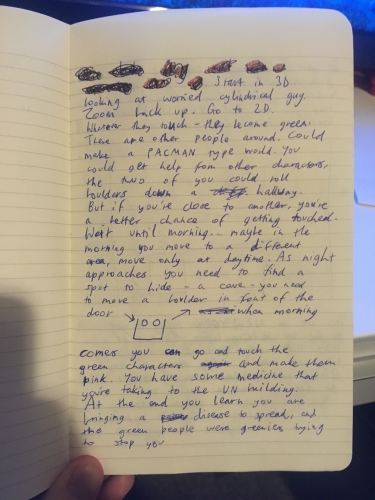 Start in 3D
looking at worried cylindrical guy.
Zoom back up. Go to 2D.
Wherever they touch - they become green.
There are other people around. Could
make a PACMAN type world. You
could get help from other characters,
the two of you could roll
boulders down a hallway.
But if you're close to another, you're
a better chance of getting touched.
Wait until morning... maybe in the
morning you move to a different
area, move only at daytime. As night
approaches you need to find a
spot to hide - a cave - you need
to move a boulder in front of the
door when morning
comes you go and touch the
green characters and make them
pink. You have some medicine that
you're taking to the UN building.
At the end you learn you are
bringing a disease to spread, and
the green people were greenies trying
to stop you